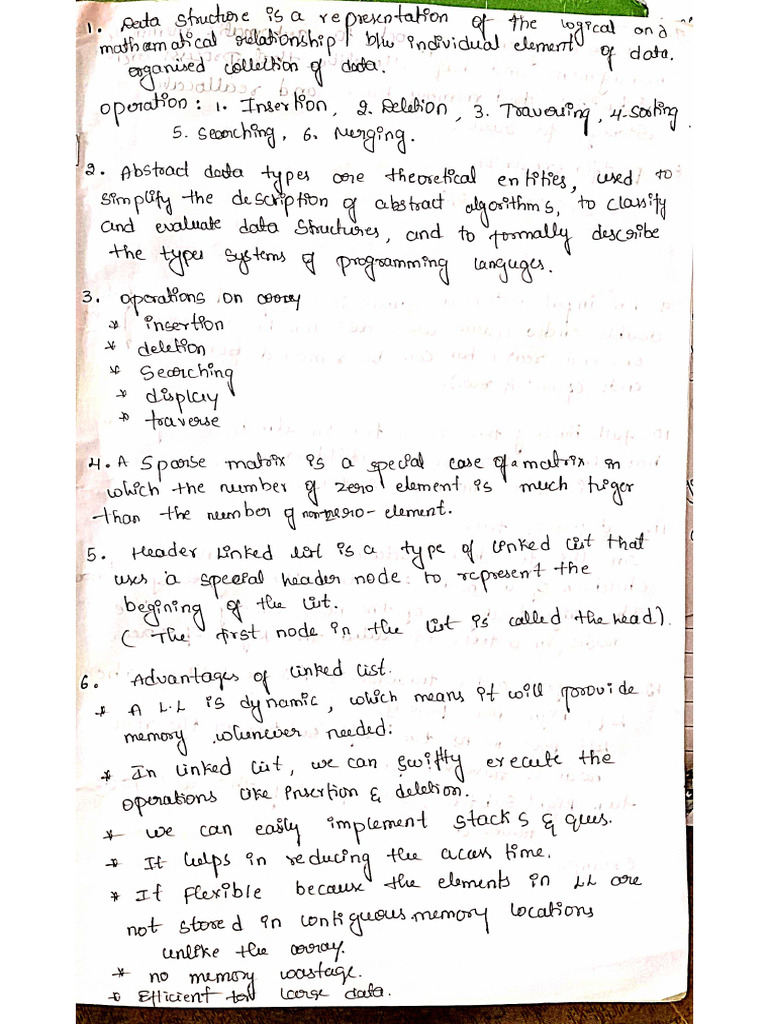 1. Data structure is a representation of the logical and
mathamatical relationship b/w individual element of data.
organised collection of data.
operation: 1. Insertion, 2. Deletion, 3. Traversing, 4. Sorting
5. Searching, 6. Merging.
2. Abstract data types are theoretical entities, used to
simplify the description of abstract algorithms, to classify
and evaluate data structures, and to formally describe
the types systems of programming languges.
3. operations on array
* insertion
* deletion
* Searching
* display
* traverse
4. A Sparse matrix is a special case of a matrix in
which the number of zero element is much
than the number of non-zero- element.
5. Header Linked list is a type of linked list that
uses a special header node to represent the
begining of the list.
( The first node in the list is called the head).
6. Advantages of linked list.
* A L.L is dynamic, which means it will provide
memory whenever needed.
* In linked list, we can swiftly execute the
operations like insertion & deletion.
* we can easily implement stacks & ques.
* It helps in reducing the acess time.
* If flexible because the elements in LL are
not stored in contiguous memory locations
unlike the array.
* no memory wastage.
* Efficient for large data.